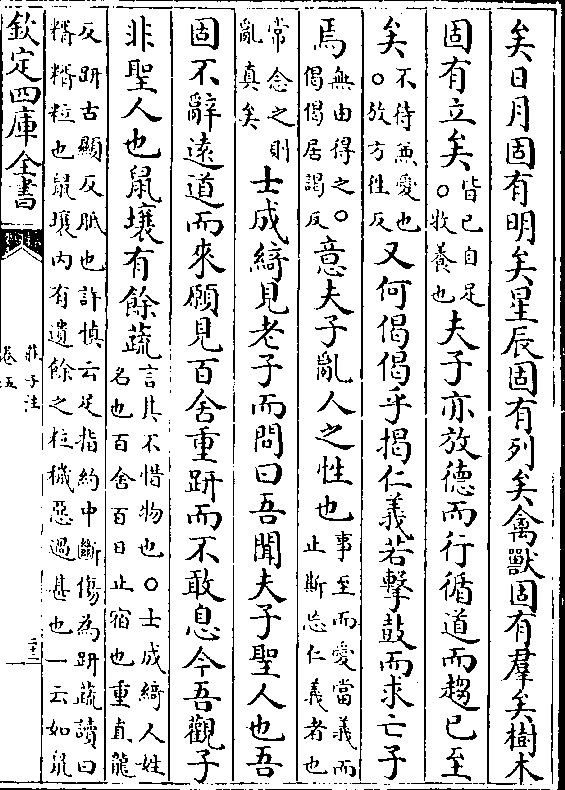 矣日月固有明矣星辰固有列矣禽獸固有羣矣樹木
固有立矣皆已自足○牧養也夫子亦放德而行循道而趨已至
矣不待兼愛也○放方徃反又何偈偈乎揭仁義若擊鼓而求亡子
焉無由得之○偈偈居謁反意夫子亂人之性也事至而愛當義而止斯忘仁義者也
常念之則亂真矣士成綺見老子而問曰吾聞夫子聖人也吾
固不辭遠道而來願見百舍重趼而不敢息今吾觀子
非聖人也鼠壤有餘蔬言其不惜物也○士成綺人姓名也百舍百日止宿也重直龍
反趼古顯反胝也許慎云足指約中斷傷為趼蔬讀曰糈糈粒也鼠壤内有遺餘之粒穢惡過甚也一云如鼠
欽定四庫全書
莊子注
卷五